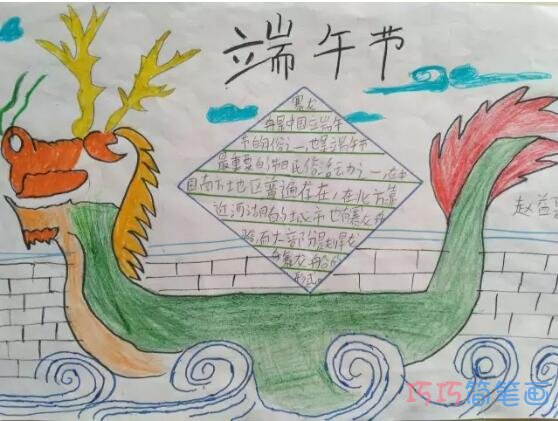 端午节
赛龙
舟是中国端午
节的习俗之一,也是端午节
最重要的节日民俗活动之一,在中
国南方地区普遍存在,在北方靠
近河湖的城市也有赛龙舟
习俗,而大部分是划旱龙
舟舞龙船的
形式。
赵益
巧巧简笔画